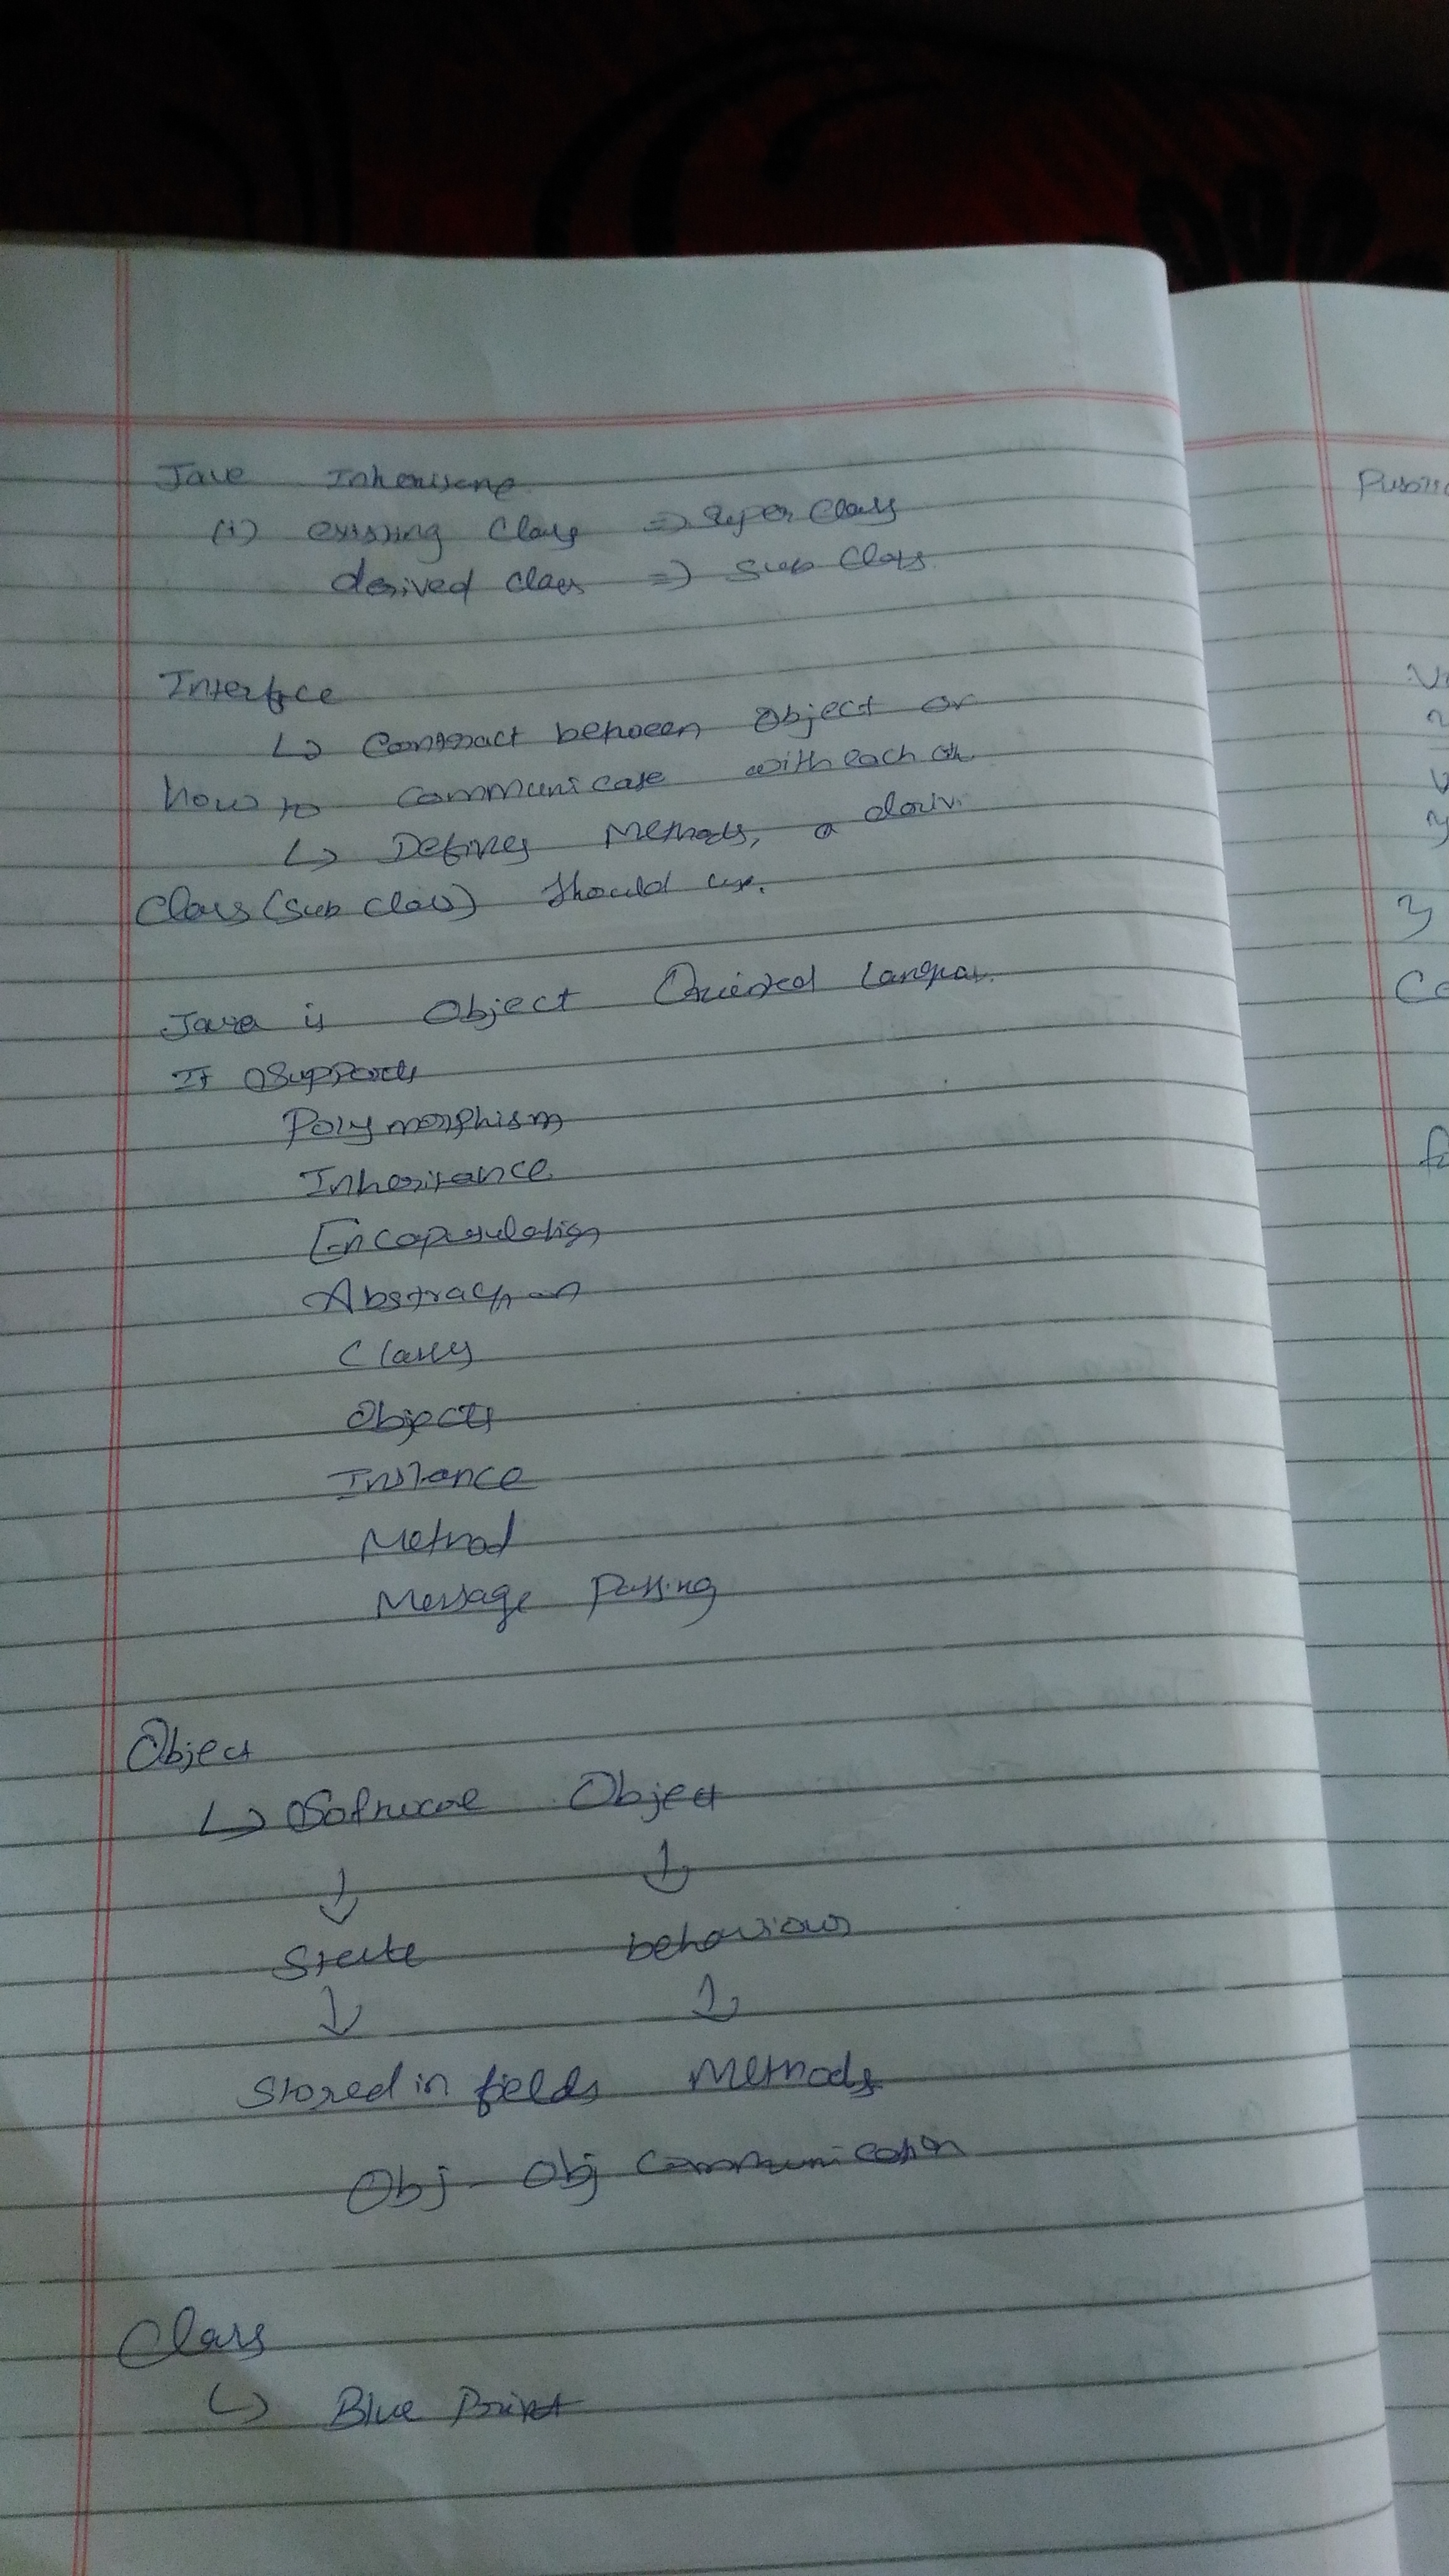 Java Inheritance
(i) existing Class => Super Class
derived class => Sub Class
Interface
↳ Contract between Object or
how to communicate with each oth
↳ Defines Methods, a deriv.
Class (Sub class) should use.
Java is Object Oriented Langua.
It Supports
Polymorphism
Inheritance
Encapsulation
Abstraction
Classes
Objects
Instance
Method
Message Passing
Object
↳ Software Object
↓ ↓
State behaviour
↓ ↓
Stored in fields Methods
Obj - Obj Communication
Class
↳ Blue Print